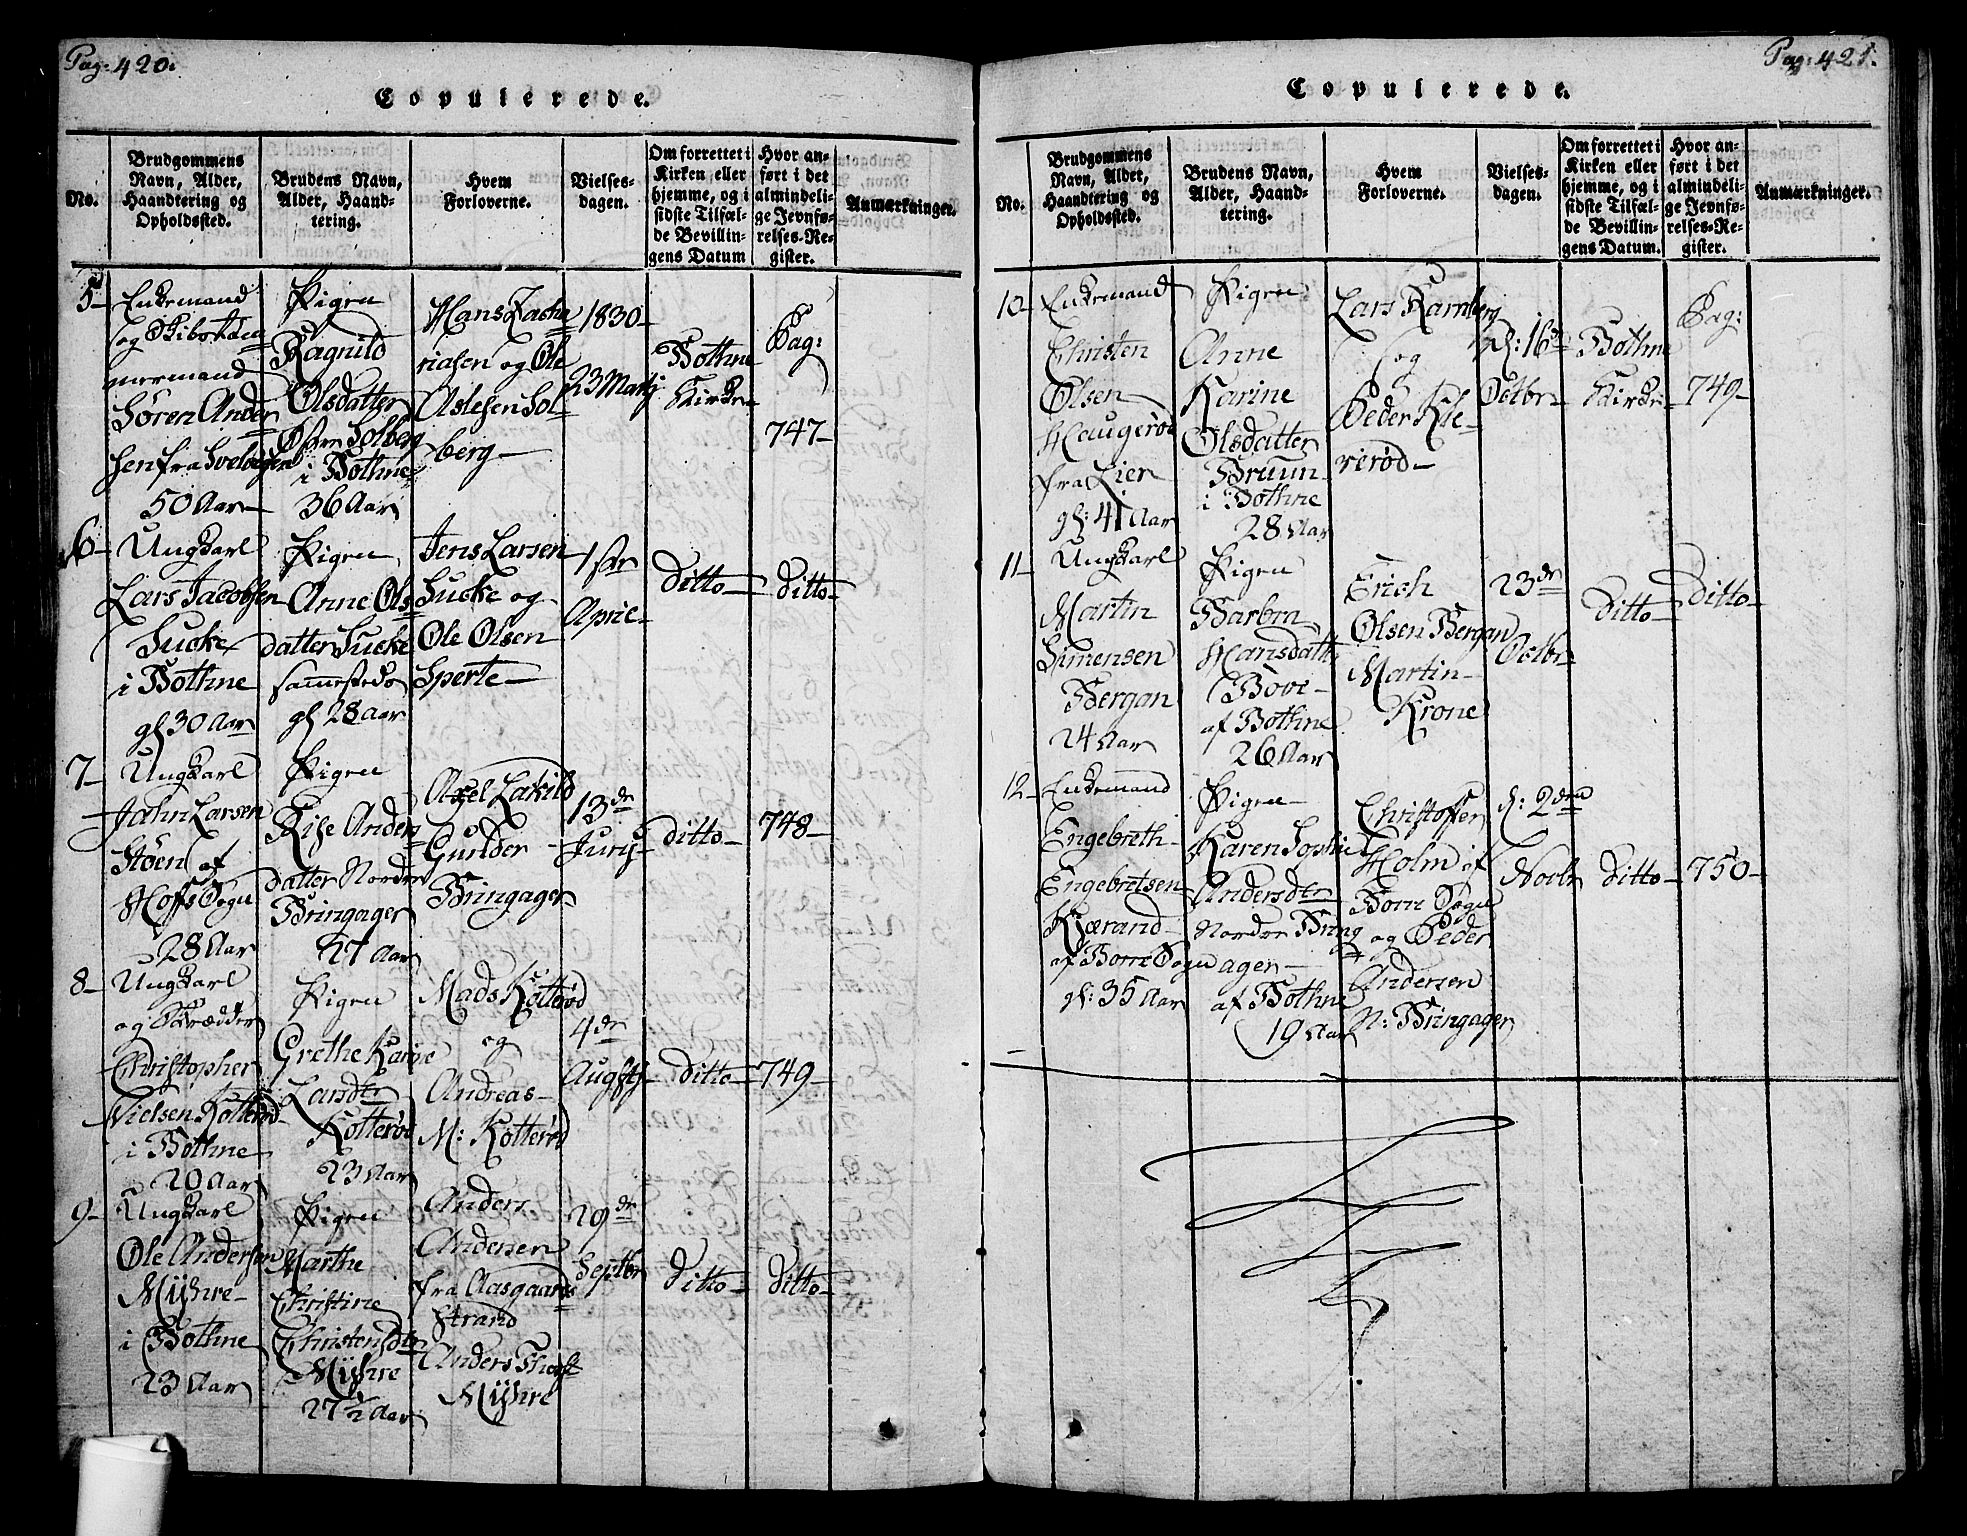 Pag: 420.
Copulerede.
No.
Brudgommens
Navn, Alder,
Haandtering og
Opholdssted.
Brudens Navn,
Alder, Haand-
tering.
Hvem
Forloverne.
Vielses-
dagen.
Om forrettet i
Kirken eller
hjemme, og i
sidste Tilfæl-
de Bevillin-
gens Datum
Hvor an-
ført i det
almindeli-
ge Jevnfø-
relses-Re-
gister.
Anmærkninger.
5
Enkemand
og
mermand
Søren Ander
sen fra
50 Aar
Pigen
Ragnild
Olsdatter
Solberg
i Bothne
36 Aar
Hans Zacha
riasen og Ole
Aslesen Sol
berg
1830
23 Martj
Bothne
Kirke
Pag:
747
6
Ungkarl
Lars Jacobsen
Sucke
i Bothne
gl 30 Aar
Pigen
Anne Ols
datter Sucke
sammesteds
gl 28 aar
Jens Larsen
Sucke og
Ole Olsen
Sperte
1ste
April
ditto
ditto
7
Ungkarl
Jahn Larsen
Støen af
Hoffs Sogn
28 Aar
Pigen
Anders
datter Nordre
Bringager
27 Aar
Axel
Gunder
Bringager
13de
Junj
ditto
748
8
Ungkarl
og Skrædder
Christopher
Nielsen Kotterød
i Bothne
20 Aar
Pigen
Grethe Karine
Larsdtr
Kotterød
23 Aar
Mads Kotterød
og
Andreas
M: Kotterød
4de
Augstj
ditto
749
9
Ungkarl
Ole Andersen
Myhre
i Bothne
23 Aar
Pigen
Marthe
Christine
Christensdtr
Myhre
27 1/2 Aar
Anders
Andersen
fra Aasgaards
strand
Anders
Myhre
29de
Septbr
ditto
ditto
Pag: 421.
Copulerede.
No.
Brudgommens
Navn, Alder,
Haandtering og
Opholdssted.
Brudens Navn,
Alder, Haand-
tering.
Hvem
Forloverne.
Vielses-
dagen.
Om forrettet i
Kirken eller
hjemme, og i
sidste Tilfæl-
de Bevillin-
gens Datum.
Hvor an-
ført i det
almindeli-
ge Jevnfø-
relses-Re-
gister.
Anmærkninger.
10
Enkemand
Christen
Olsen
Haugerød
fra Lier
gl: 41 Aar
Pigen
Anne
Karine
Olsdatter
Bruun
i Bothne
28 Aar
Lars Ramberg
og
Peder Kle
verød
d: 16de
Octbr
Bothne
Kirke
Pag:
749
11
Ungkarl
Martin
Simensen
Bergan
24 Aar
Pigen
Barbra
Hansdattr
Bove
af Bothne
26 Aar
Erich
Olsen Bergan
Martin
Krone
23de
Octbr
ditto
ditto
12
Enkemand
Engebreth
Engebretsen
Kjærand
af Borre Sogn
gl: 35 Aar
Pigen
Karen Sophie
Andersdtr
Nordre Bring
ager
af Bothne
19 Aar
Christoffer
Holm af
Borre Sogn
og Peder
Andersen
N: Bringager
d: 2den
Novbr
ditto
750